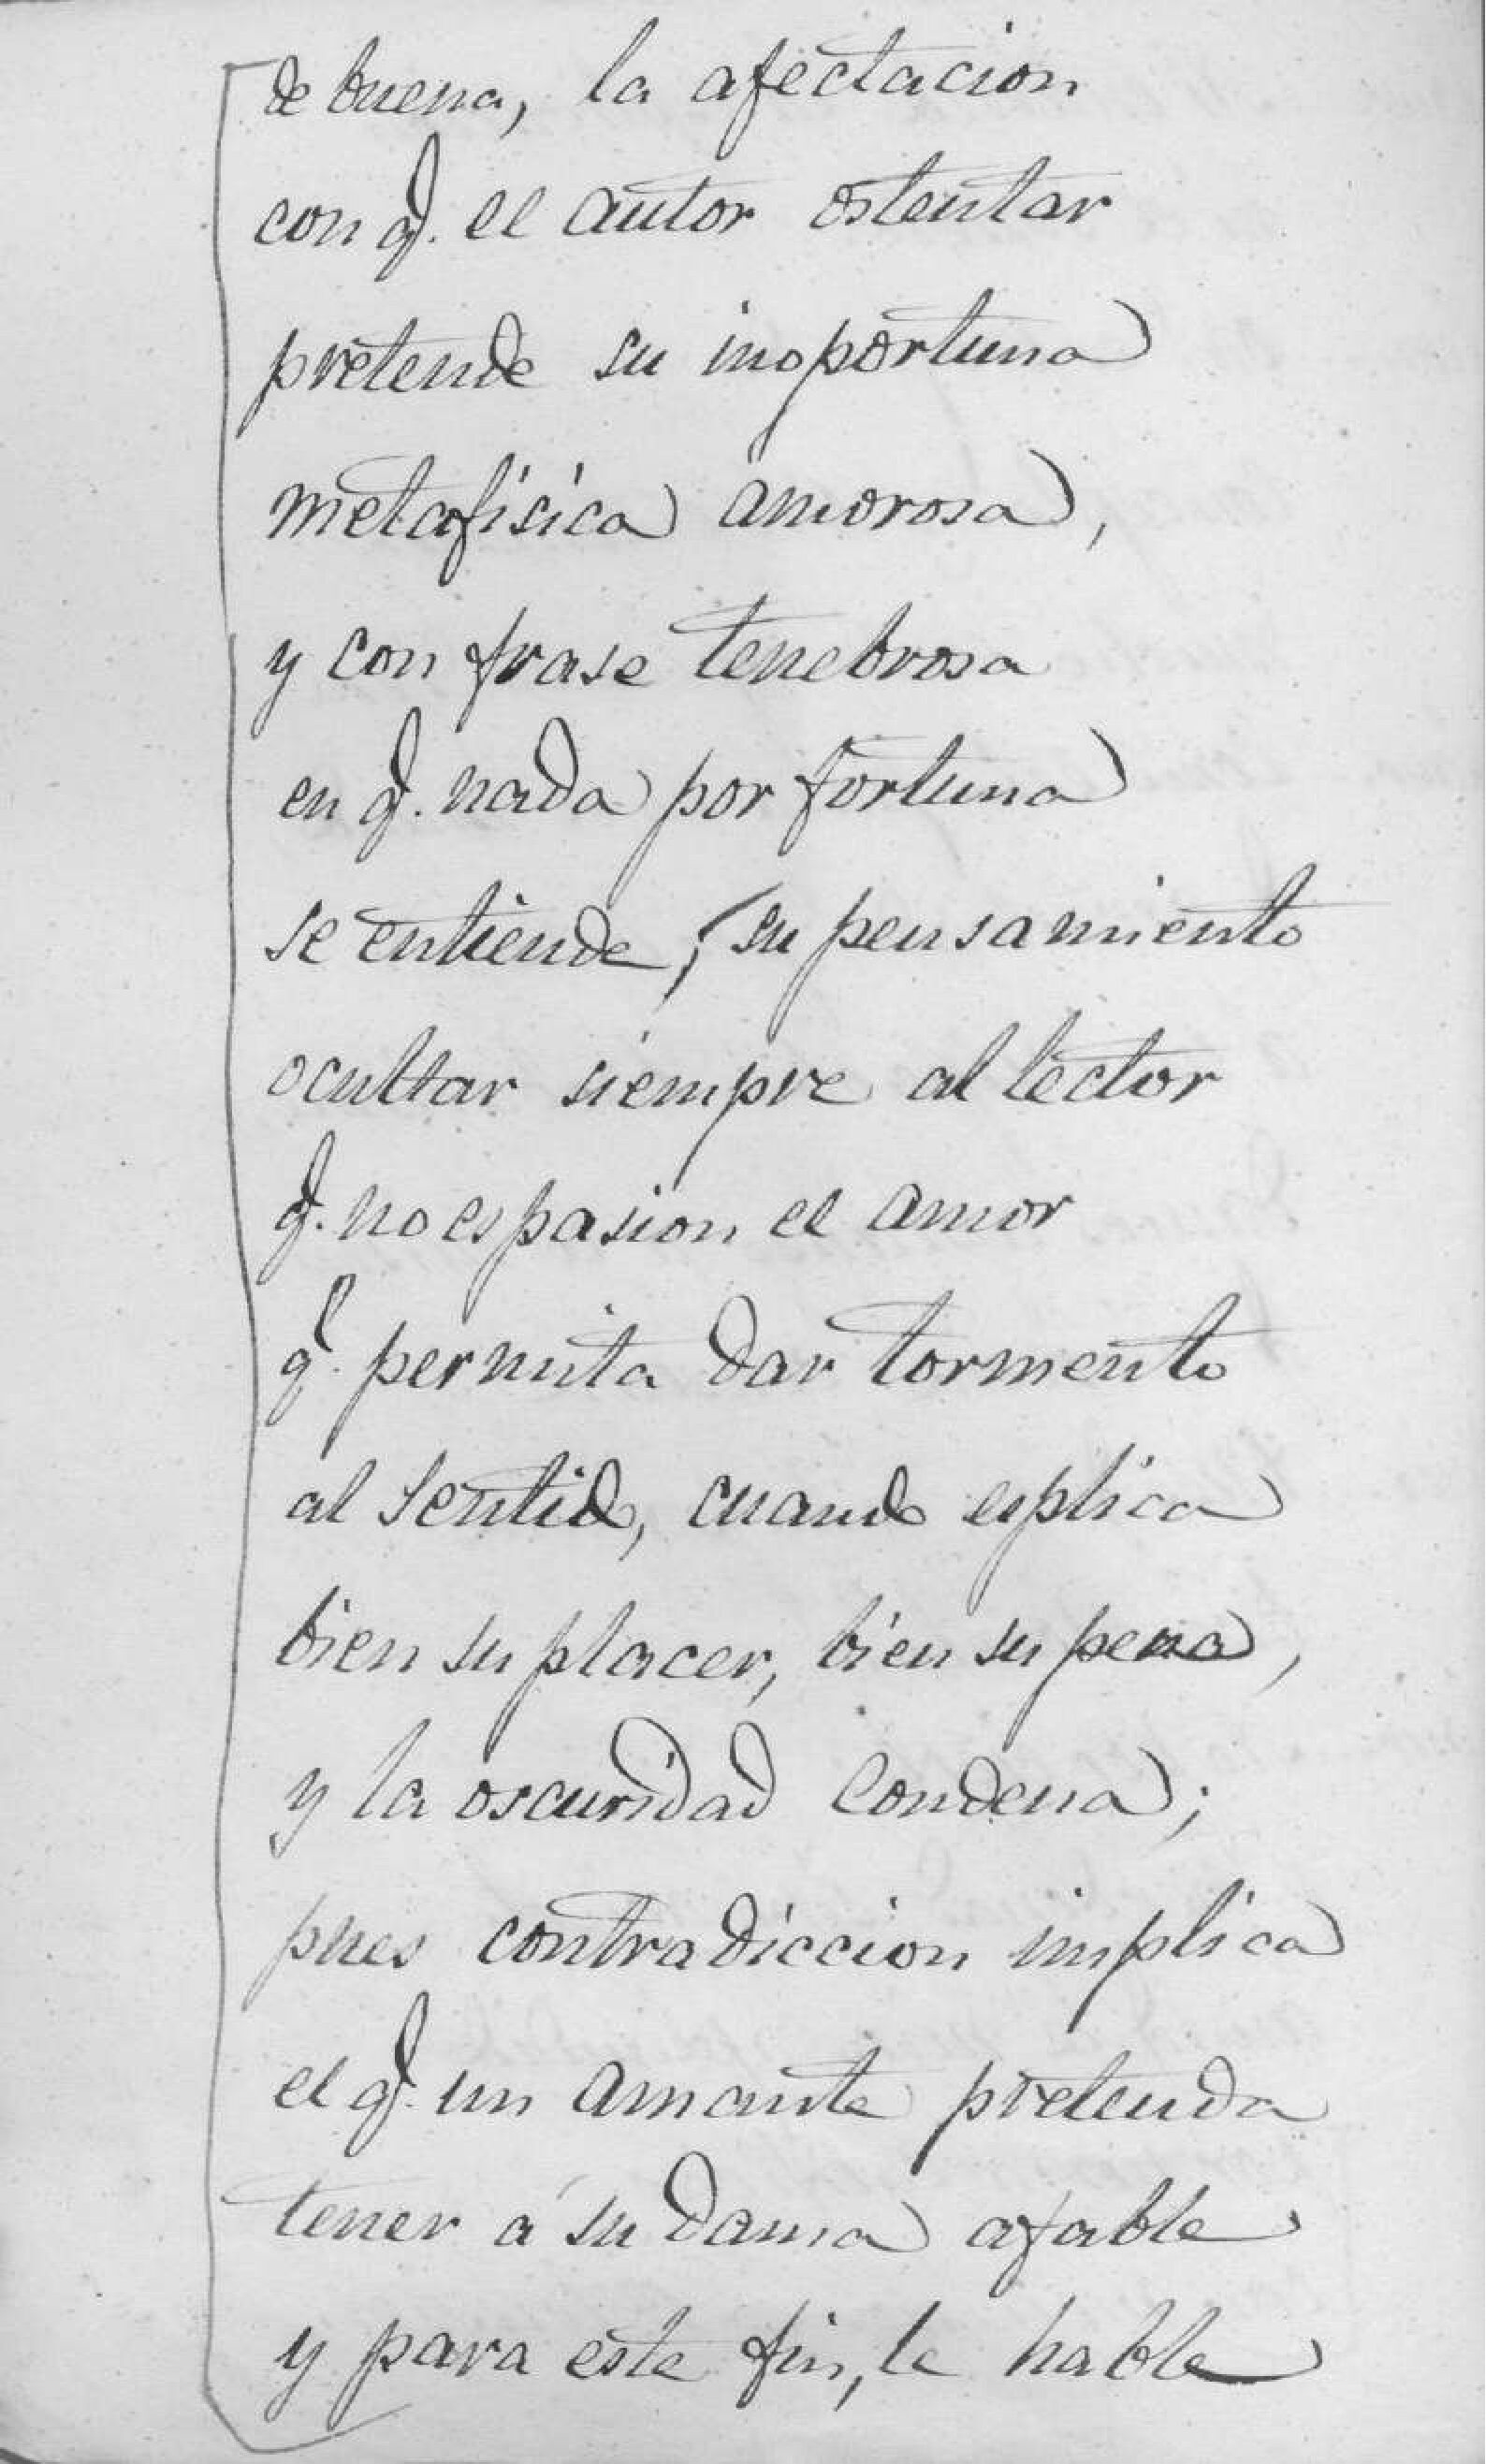 de buena, la afectacion
con q. el autor ostentar
pretende su inoportuna
metafísica amorosa,
y con frase tenebrosa
en q. nada por fortuna
se entiende, su pensamiento
ocultar siempre al lector
q. no es pasion el amor
q. permita dar tormento
al sentido, cuando esplica
bien su placer, bien su pena,
y la oscuridad condena;
pues contradiccion implica
el q. un amante pretenda
tener á su dama afable
y para este fin, le hable